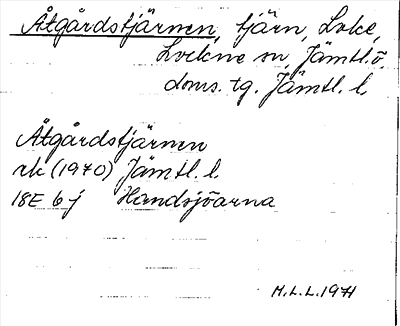 Åtgårdstjärnen, tjärn, Loke,
Lockne sn, Jämtl.ö.
doms. tg. Jämtl. l.
Åtgårdstjärnen
rk (1970) Jämtl. l.
18E 6 j Handsjöarna
M.L.L. 1971